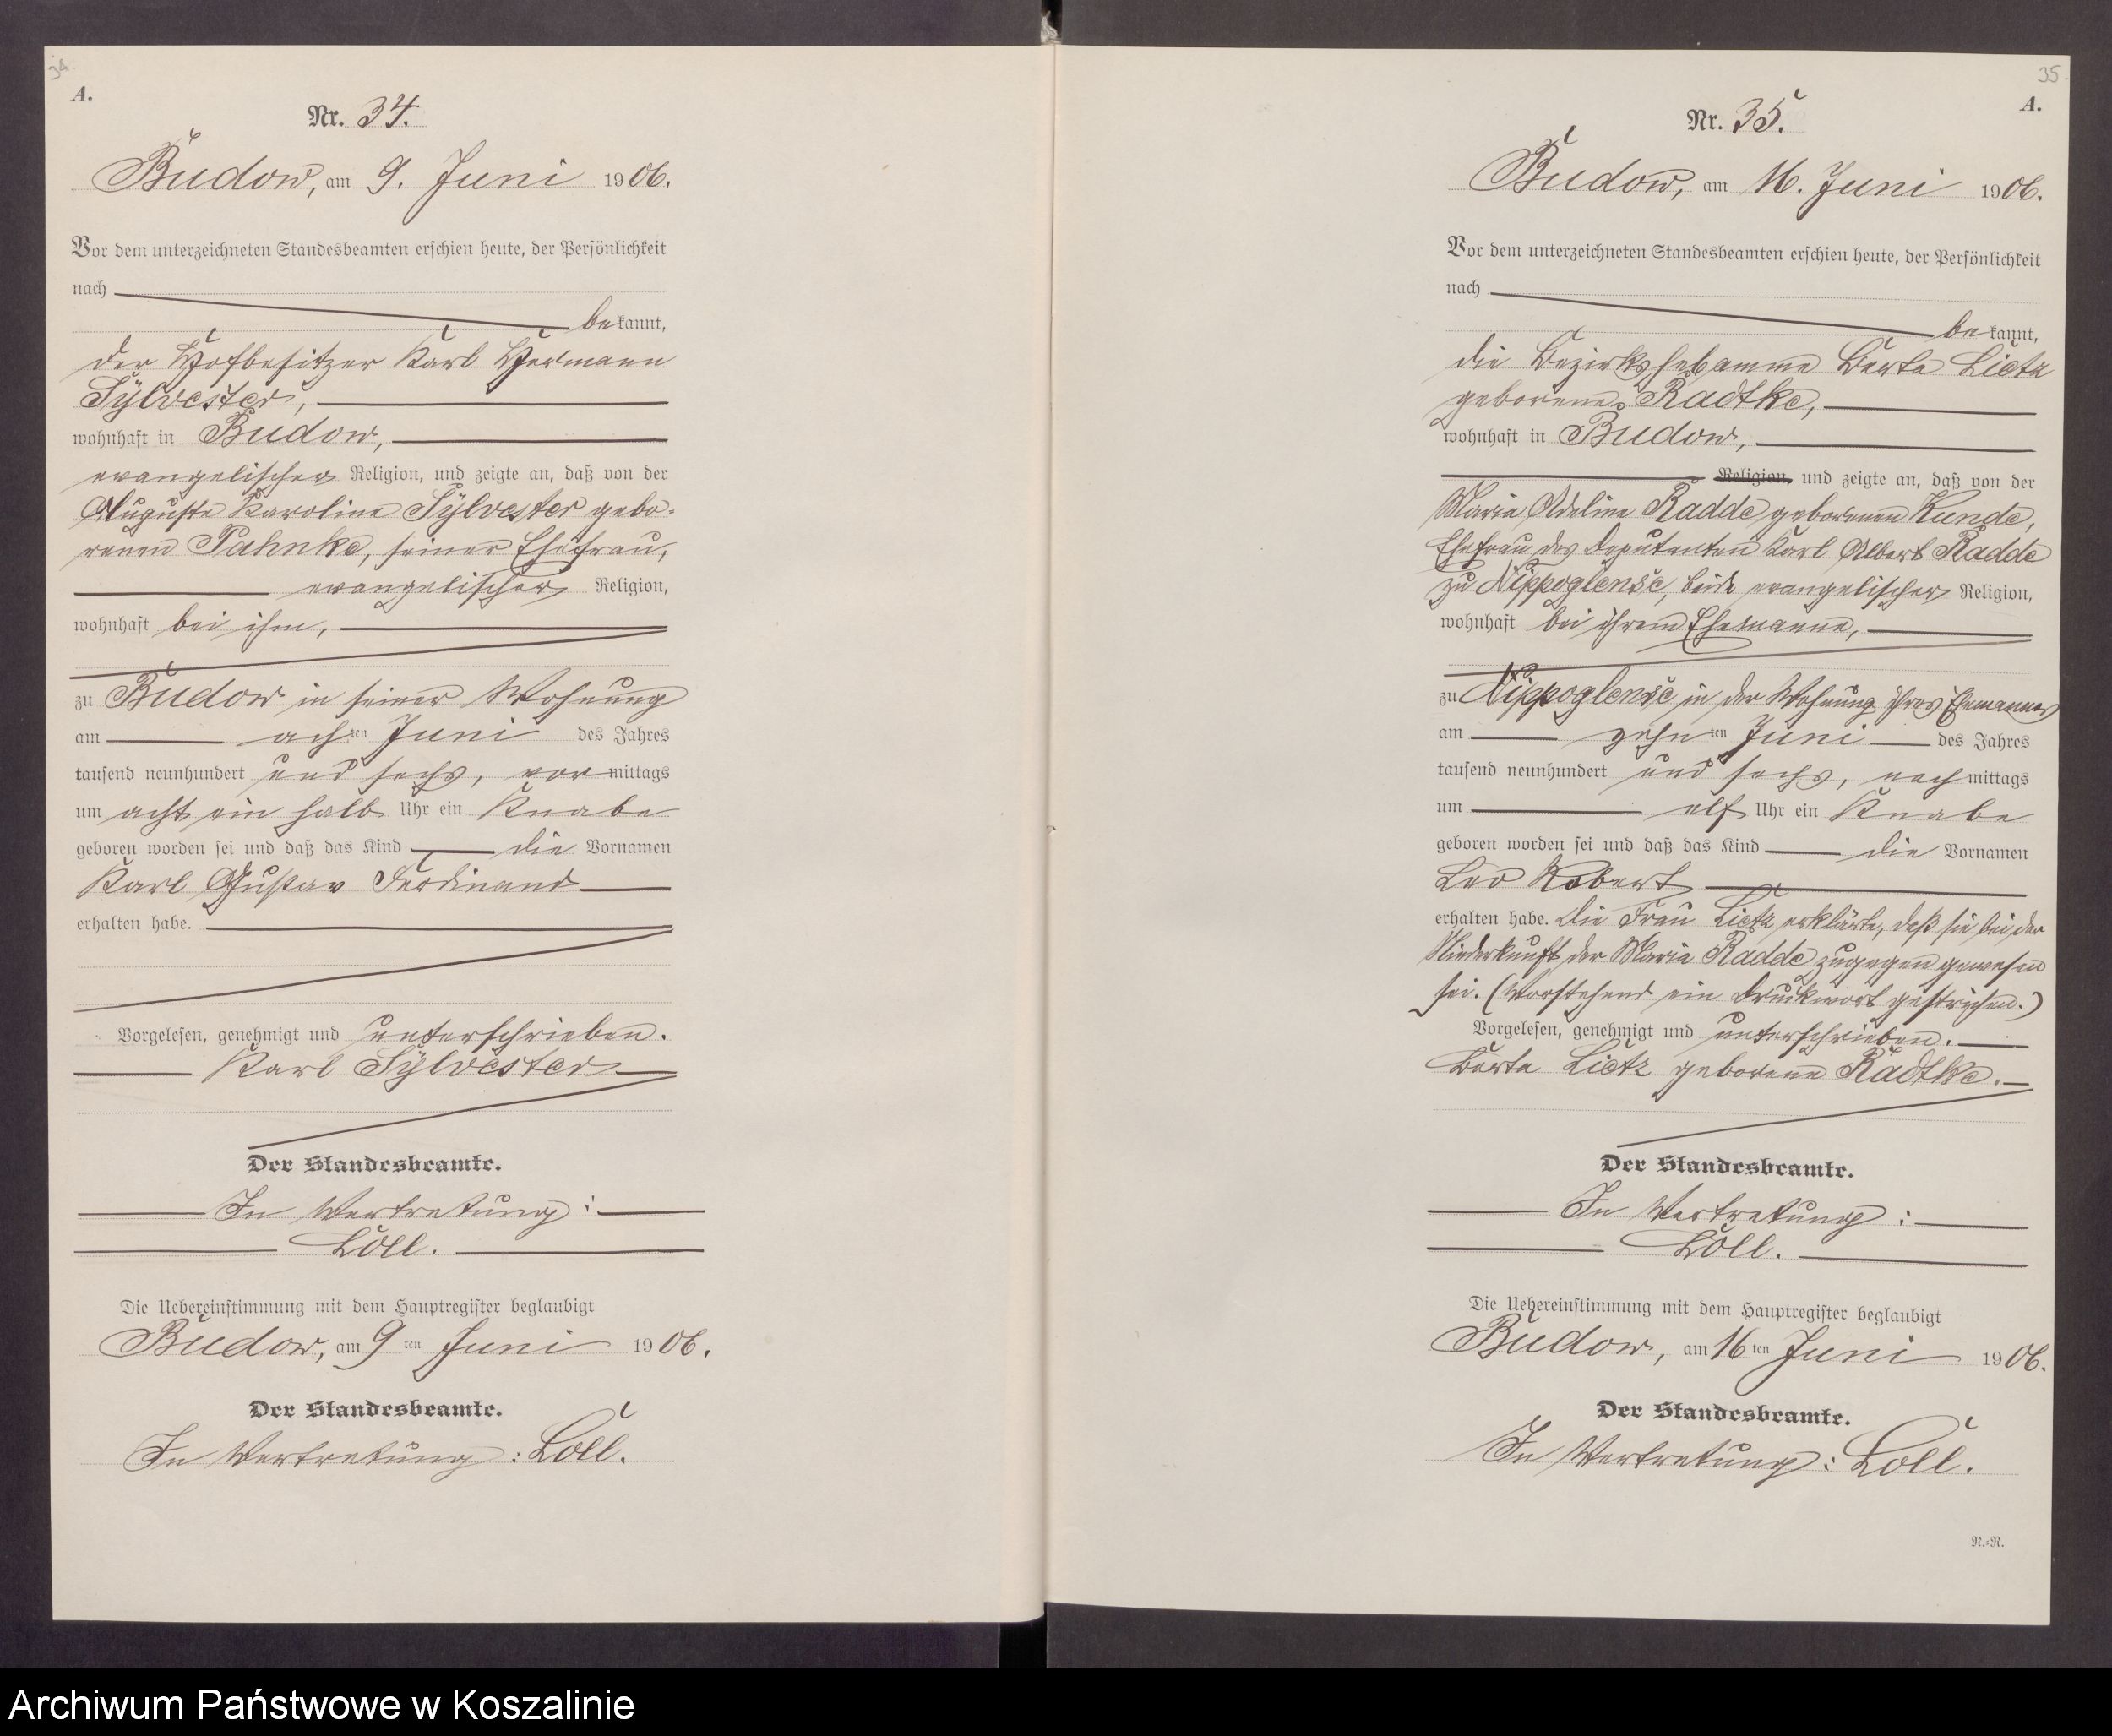 34.
A.
Nr. 34.
Budow, am 9. Juni 1906.
Vor dem unterzeichneten Standesbeamten erschien heute, der Persönlichkeit
nach
bekannt,
der Hofbesitzer Karl Hermann
Sylvester,
wohnhaft in Budow,
evangelischer Religion, und zeigte an, daß von der
Auguste Karoline Sylvester gebo-
renen Pahnke, seiner Ehefrau,
evangelischer Religion,
wohnhaft bei ihm,
zu Budow in seiner Wohnung
am achten Juni des Jahres
tausend neunhundert und sechs, vormittags
um acht ein halb Uhr ein Knabe
geboren worden sei und daß das Kind die Vornamen
Karl Gustav Ferdinand
erhalten habe.
Vorgelesen, genehmigt und unterschrieben.
Karl Sylvester
Der Standesbeamte.
In Vertretung:
Loll.
Die Uebereinstimmung mit dem Hauptregister beglaubigt
Budow, am 9ten Juni 1906.
Der Standesbeamte.
In Vertretung: Loll.
35.
A.
Nr. 35.
Budow, am 16. Juni 1906.
Vor dem unterzeichneten Standesbeamten erschien heute, der Persönlichkeit
nach
bekannt,
die Bezirkshebamme Berta Lietz
geborene Radtke,
wohnhaft in Budow,
Religion, und zeigte an, daß von der
Maria Adeline Radde geborenen Kunde,
Ehefrau des Deputanten Karl Albert Radde
zu Nippoglense, beide evangelischer Religion,
wohnhaft bei ihrem Ehemanne,
zu Nippoglense in der Wohnung ihres Ehemannes
am zehnten Juni des Jahres
tausend neunhundert und sechs, nachmittags
um elf Uhr ein Knabe
geboren worden sei und daß das Kind die Vornamen
Leo Robert
erhalten habe. Die Frau Lietz erklärte, daß sie bei der
Niederkunft der Maria Radde zugegen gewesen
sei. (Vorstehend ein Druckwort gestrichen.)
Vorgelesen, genehmigt und unterschrieben.
Berta Lietz geborene Radtke.
Der Standesbeamte.
In Vertretung:
Loll.
Die Uebereinstimmung mit dem Hauptregister beglaubigt
Budow, am 16ten Juni 1906.
Der Standesbeamte.
In Vertretung: Loll.
N.=N.
Archiwum Państwowe w Koszalinie